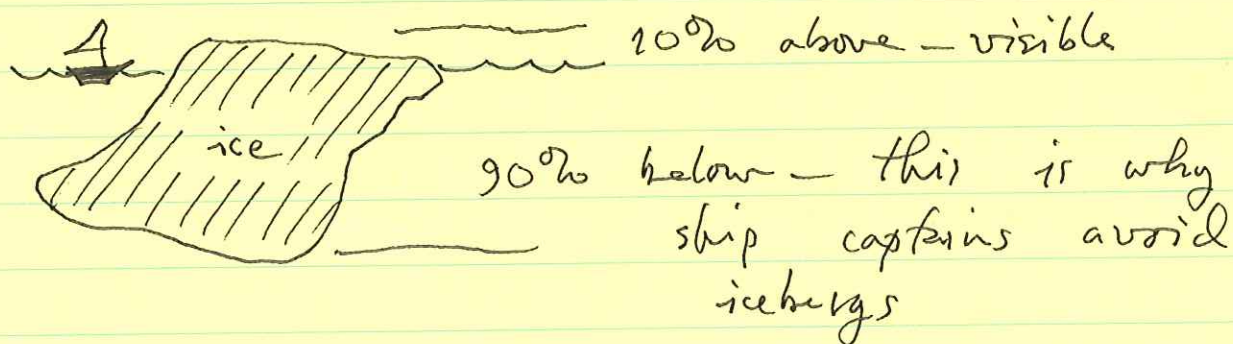 10% above – visible
ice
90% below – this is why
ship captains avoid
icebergs